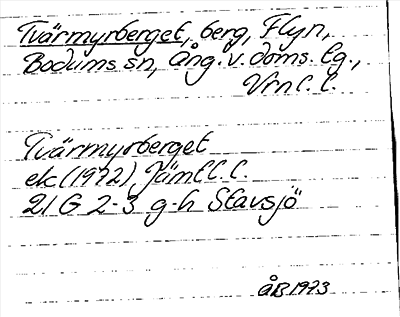 Tvärmyrberget, berg, Flyn,
Bodums sn, Ång. v. doms. lg.,
Vrnl. l.
Tvärmyrberget
ek (1972) Jämtl. l.
21 G 2-3 g-h Stavsjö
ÅB 1973